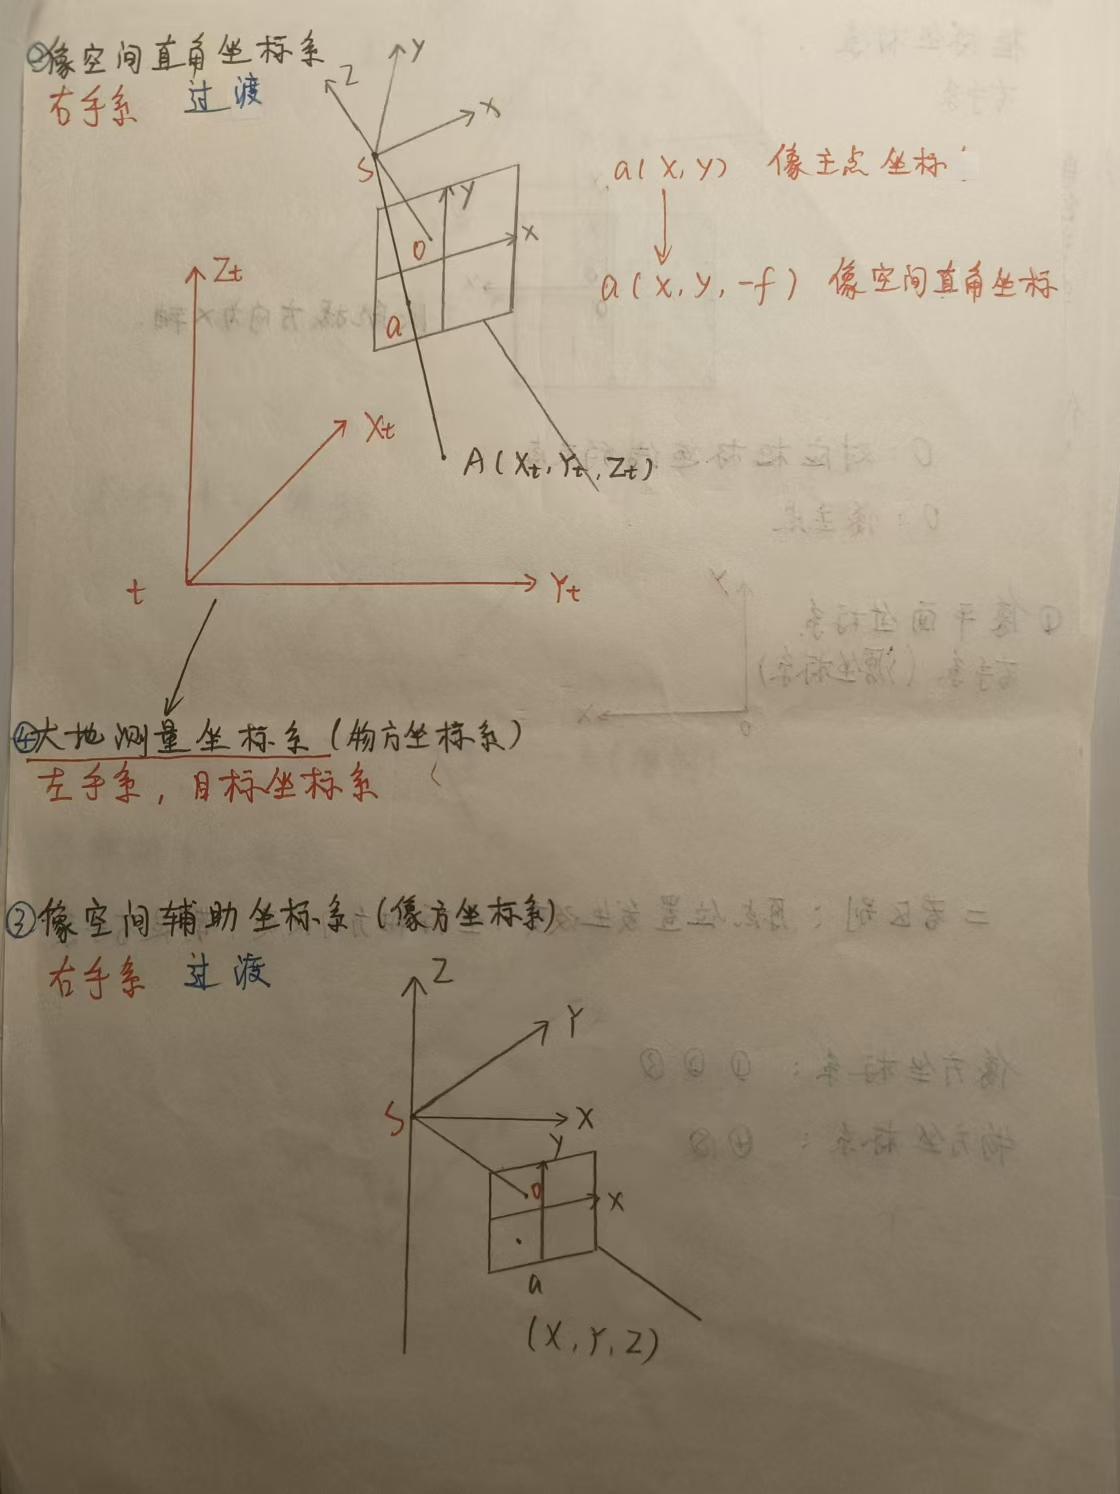 ②像空间直角坐标系
右手系 过渡
Z
Y
X
S
Y
X
O
a
a(x,y) 像主点坐标
a(x,y,-f) 像空间直角坐标
Zt
Xt
A(Xt,Yt,Zt)
t
Yt
④大地测量坐标系(物方坐标系)
左手系,目标坐标系
③像空间辅助坐标系(像方坐标系)
右手系 过渡
Z
Y
S
X
Y
O
X
a
(X,Y,Z)